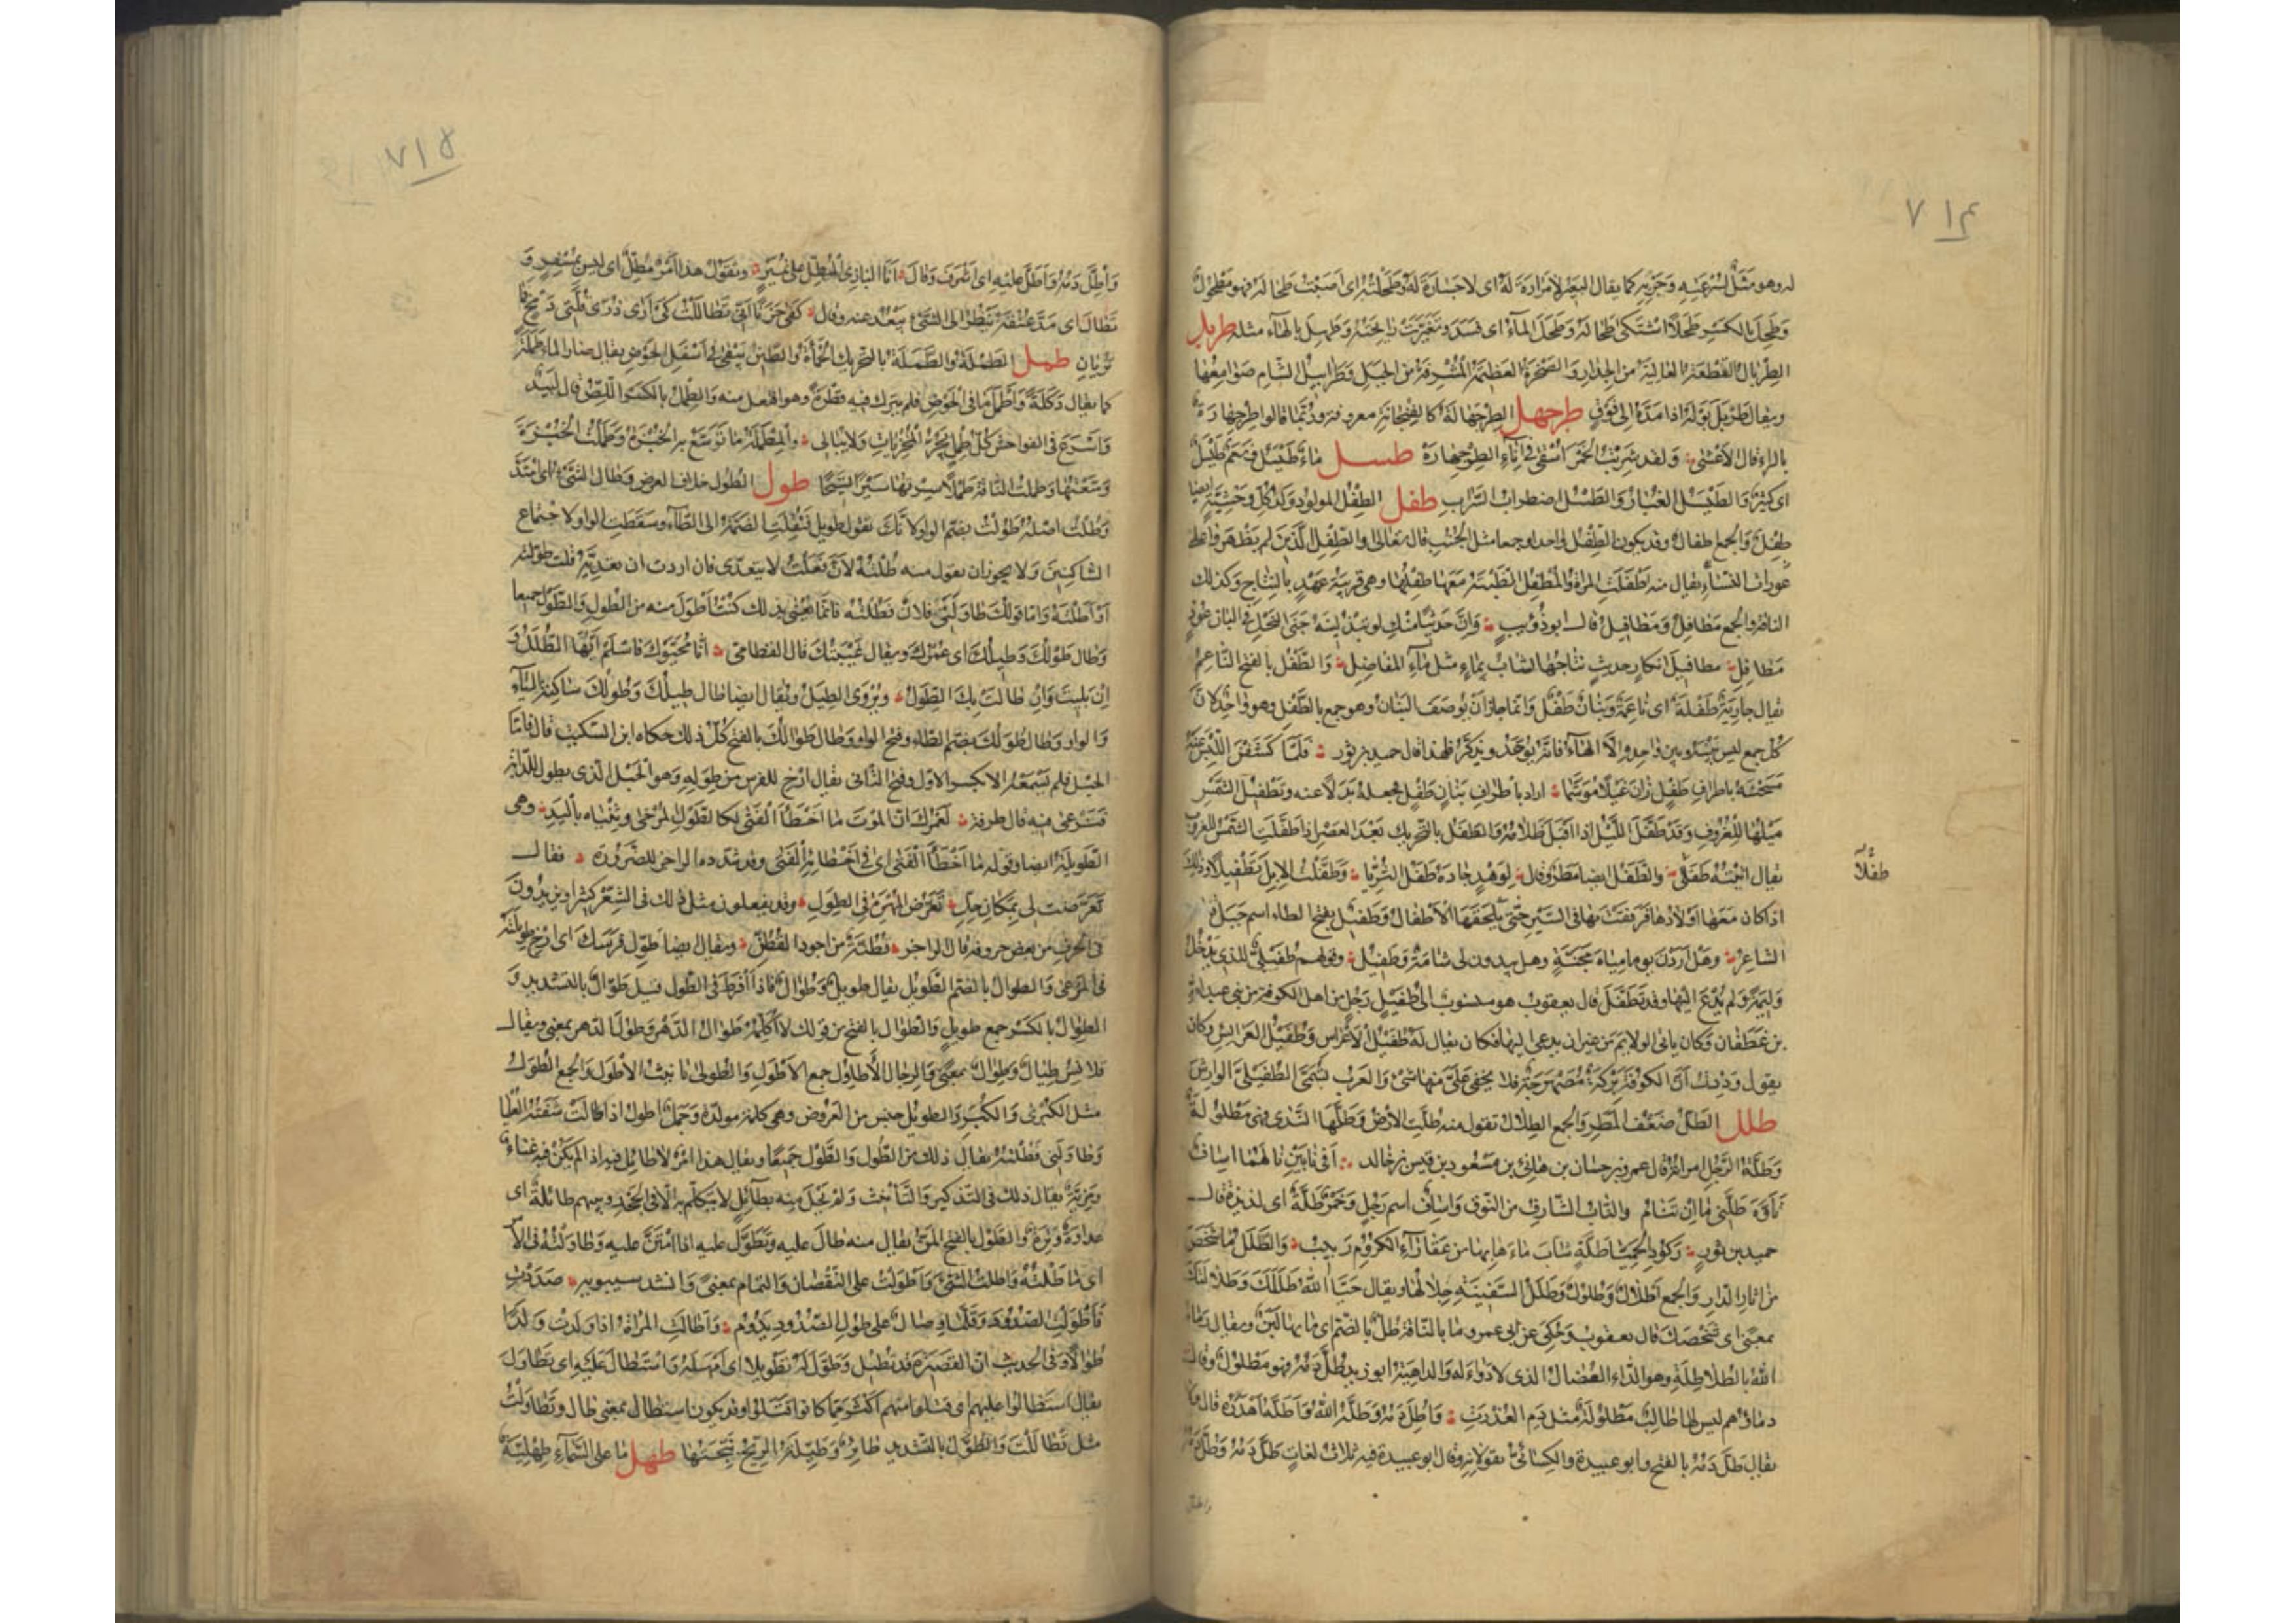 ٧١٤
له وهو مثل لسرعته وجريه كما يقال البعير لا مرارة له اى لا جسارة له وطحلته اى اصبت طحاله فهو مطحول
وطحل بالكسر طحلا اشتكى طحاله وطحل الماء اى فسد وتغيرت رائحته وطهل بالهاء مثله طربل
الطربال القطعة العالية من الجدار والصخرة العظيمة المشرفة من الجبل وطرابيل الشام صوامعها
ويقال طربل بوله اذا مده الى فوق طرجهل الطرجهالة كالفنجانة معروفة وربما قالوا طرجهارة
بالراء قال الاعشى ولقد شربت الخمر اسقى فى اناء الطرجهاره طسل ماء طيسل ونعم طيسل
اى كثيرة والطيسل الغبار والطسل اضطراب السراب طفل الطفل المولود وولد كل وحشية ايضا
طفل والجمع اطفال وقد يكون الطفل واحدا وجمعا مثل الجنب قال تعالى او الطفل الذين لم يظهروا على
عورات النساء يقال منه اطفلت المراة والمطفل الظبية معها طفلها وهى قريبة عهد بالنتاج وكذلك
الناقة والجمع مطافل ومطافيل قال ابو ذؤيب وان حديثا منك لو تبذلينه جنى النحل فى البان عوذ
مطافل مطافيل ابكار حديث نتاجها تشاب بماء مثل ماء المفاصل والطفل بالفتح الناعم
يقال جارية طفلة اى ناعمة وبنان طفل وانما جاز ان يوصف البنان وهو جمع بالطفل وهو واحد لان
كل جمع ليس بينه وبين واحده الا الهاء فانه يوحد ويذكر فلهذا قال حميد بن ثور فلما كشفن اللبس عنه
مسحنه باطراف طفل زان غيلا موشما اراد باطراف بنان طفل فجعله بدلا عنه وتطفيل الشمس
ميلها للغروب وقد طفل الليل اذا اقبل ظلامه والطفل بالتحريك بعد العصر اذا طفلت الشمس للغروب
يقال اتيته طفلا والطفل ايضا مطر وقال لوهد جاده طفل الثريا وطفلت الابل تطفيلا وذلك
طفلا
اذا كان معها اولادها فرفقت بها فى السير حتى يلحقها الاطفال وطفيل بفتح الطاء اسم جبل قال
الشاعر وهل اردن يوما مياه مجنة وهل يبدون لى شامة وطفيل وقولهم طفيلى للذى يدخل
وليمة ولم يدع اليها وقد تطفل قال يعقوب هو منسوب الى طفيل رجل من اهل الكوفة من بنى عبد الله
بن غطفان وكان ياتى الولايم من غير ان يدعى اليها فكان يقال له طفيل الاعراس وطفيل العرائس وكان
يقول وددت ان الكوفة بركة مصهرجة فلا يخفى على منها شىء والعرب تسمى الطفيلى الوارش
طلل الطل ضعف المطر والجمع الطلال تقول منه طلت الارض وطلها الندى فهى مطلولة
وطلة الرجل امراته قال عمرو بن حسان بن هانئ بن مسعود بن قيس بن خالد افى نابين نالهما اساف
تاوه طلتى ما ان تنام والناب الشارف من النوق واساف اسم رجل وخمر طلة اى لذيذة قال
حميد بن ثور ركود الحميا طلة شاب ماءها بها من عقاراء الكروم ربيب والطلل ما شخص
من اثار الدار والجمع اطلال وطلول وطلل السفينة جلالها ويقال حيا الله طللك وطلالتك
بمعنى اى شخصك قال يعقوب وحكى عن ابى عمرو ما بالناقة طل بالضم اى ما بها لبن ويقال رماه
الله بالطلاطلة وهو الداء العضال الذى لا دواء له والداهية ابو زيد طل دمه فهو مطلول وقال
دماؤهم ليس لها طالب مطلولة مثل دم العذرت واطل دمه وطله الله واطله اهدره قال ولا
يقال طل دمه بالفتح وابو عبيدة والكسائى يقولانه وقال ابو عبيدة فيه ثلاث لغات طل دمه وطل دمه
واطل
٧١٥
واطل دمه واطل عليه اى اشرف وقال انا البازى المطل على نمير وتقول هذا امر مطل اى ليس بمسفر و
تطال اى مد عنقه ينظر الى الشىء يبعد عنه وقال كفى حزنا انى تطاللت كى ارى ذرى قلتى دمخ فما
تريان طمل الطملة والطملة بالتحريك الحمأة والطين يبقى فى اسفل الحوض يقال صار الماء طملة
كما يقال دكلة واطمل ما فى الحوض فلم يترك فيه قطرة وهو افتعل منه والطمل بالكسر اللص قال لبيد
واسرع فى الفواحش كل طمل يجر المخزيات ولا يبالى والمطملة ما توسع به الخبزة وطملت الخبزة
وسعتها وطملت الناقة طملا سيرتها سيرا فسيحا طول الطول خلاف العرض وطال الشىء اى امتد
وطلت اصله طولت بضم الواو لانك تقول طويل فنقلت الضمة الى الطاء وسقطت الواو لاجتماع
الساكنين ولا يجوز ان تقول منه طلته لان فعلت لا يتعدى فان اردت ان تعديه قلت طولته
او اطلته واما قولك طاولنى فلان فطلته فانما تعنى بذلك كنت اطول منه من الطول والطول جميعا
وطال طولك وطيلك اى عمرك ويقال غيبتك قال القطامى انا محيوك فاسلم ايها الطلل و
ان بليت وان طالت بك الطول ويروى الطيل ويقال ايضا طال طيلك وطولك ساكنة الياء
والواو وطال طولك بضم الطاء وفتح الواو وطال طوالك بالفتح كل ذلك حكاه ابن السكيت قال فاما
الحبل فلم نسمعه الا بكسر الاول وفتح الثانى يقال ارخ للفرس من طوله وهو الحبل الذى يطول للدابة
فترعى فيه قال طرفة لعمرك ان الموت ما اخطأ الفتى لكالطول المرخى وثنياه باليد وهى
الطويلة ايضا وقوله ما اخطأ الفتى اى فى اخطائه الفتى وقد شدده الراجز للضرورة فقال
تعرضت لى بمكان حل تعرض المهرة فى الطول وقد يفعلون مثل ذلك فى الشعر كثيرا ويزيدون
فى الحرف من بعض حروفه قال الراجز قطنة من اجود القطن ويقال ايضا طول فرسك اى ارخ طويلته
فى المرعى والطوال بالضم الطويل يقال طويل وطوال فاذا افرط فى الطول قيل طوال بالتشديد و
الطوال بالكسر جمع طويل والطوال بالفتح من قولك لا اكلمه طوال الدهر وطول الدهر بمعنى ويقال
قلانس طيال وطوال بمعنى والرجال الاطاول جمع الاطول والطولى تانيث الاطول والجمع الطول
مثل الكبرى والكبر والطويل جنس من العروض وهى كلمة مولدة وجمل اطول اذا طالت شفته العليا
وطاولنى فطلته يقال ذلك من الطول والطول جميعا ويقال هذا امر لا طائل فيه اذا لم يكن فيه غناء
ومزية يقال ذلك فى التذكير والتانيث ولم يحل منه بطائل لا يتكلم به الا فى الجحد وبينهم طائلة اى
عداوة وترة والطول بالفتح المن يقال منه طال عليه وتطول عليه اذا امتن عليه وطاولته فى الامر
اى ماطلته واطلت الشىء واطولت على النقصان والتمام بمعنى وانشد سيبويه صددت
فاطولت الصدود وقلما وصال على طول الصدود يدوم واطالت المراة اذا ولدت ولدا
طوالا وفى الحديث ان القصيرة قد تطيل وطول له تطويلا اى امهله واستطال عليه اى تطاول
يقال استطالوا عليهم اى قتلوا منهم اكثر مما كانوا قتلوا وقد يكون استطال بمعنى طال وتطاولت
مثل تطاللت والطول بالتشديد طائر وطيلة الريح نيحتها طهل ما على السماء طهلئة